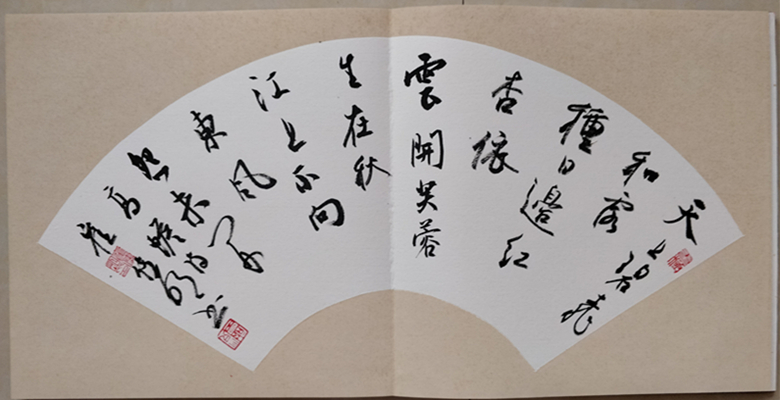 天上碧桃
和露
種日邊紅
杏依
雲開芙蓉
生在秋
江上不向
東風
怨未
高蟾
書